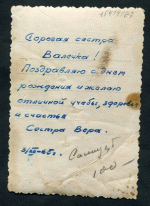 Дорогая сестра
Валечка!
Поздравляю с днем
рождения и желаю
отличной учебы, здоровья
и счастья
Сестра Вера.
100-